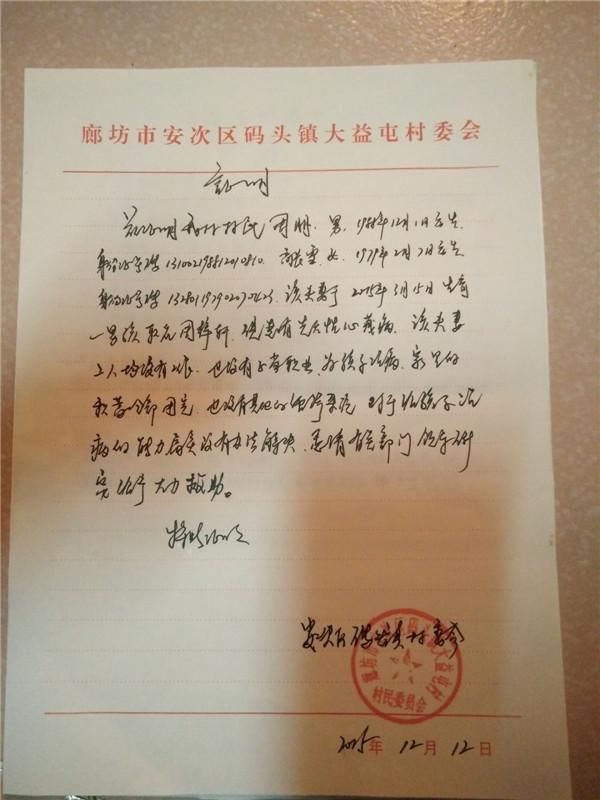 廊坊市安次区码头镇大益屯村委会
证明
兹证明我村村民周朋，男，1988年12月1日出生，
身份证号码131002198812010810. 女，1979年2月7日出生
身份证号码 该夫妻于2015年3月15日生育
一男孩取名周梓轩，现患有先天性心脏病。该夫妻
二人均没有工作，也没有正当职业，为孩子治病，家里的
积蓄全部用光，也没有其他的经济来源，对于给孩子治
病的能力确实没有办法解决，恳请有关部门领导研
究给予大力救助。
特此证明
安次区码头 村委会
廊坊市安次区码头镇大益屯村
村民委员会
2015年12月12日